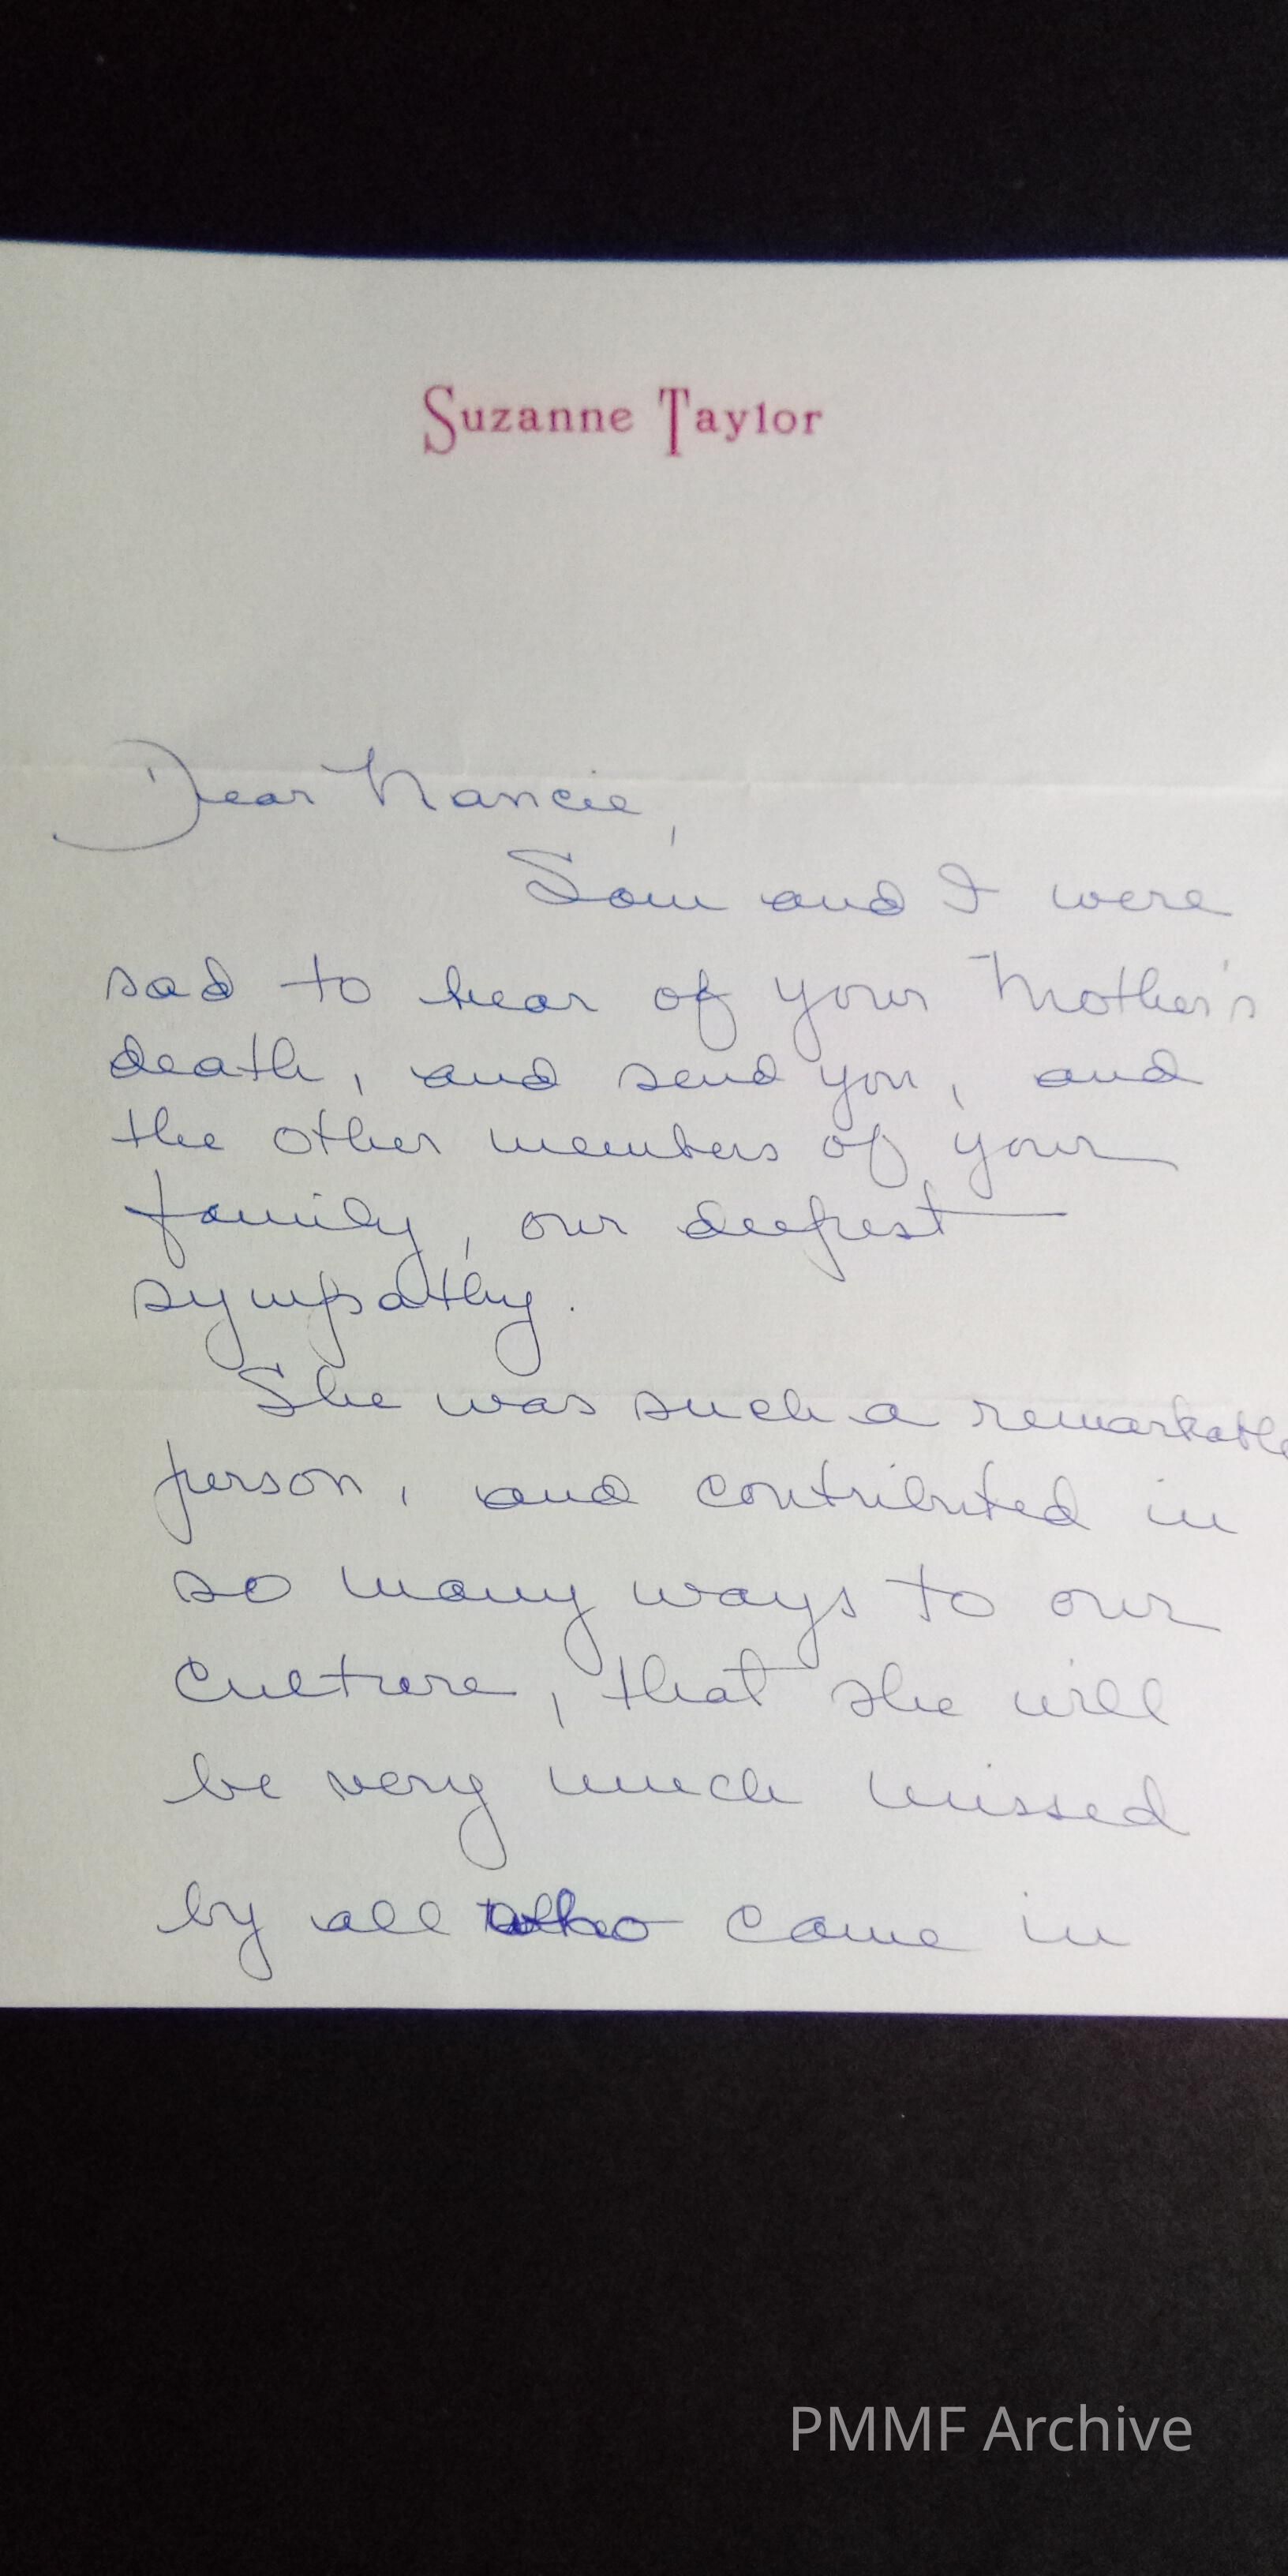 Suzanne Taylor
Dear Nancie,
Sam and I were
sad to hear of your Mother's
death, and send you, and
the other members of your
family, our deepest
sympathy.
She was such a remarkable
person, and contributed in
so many ways to our
culture, that she will
be very much missed
by all who came in
PMMF Archive